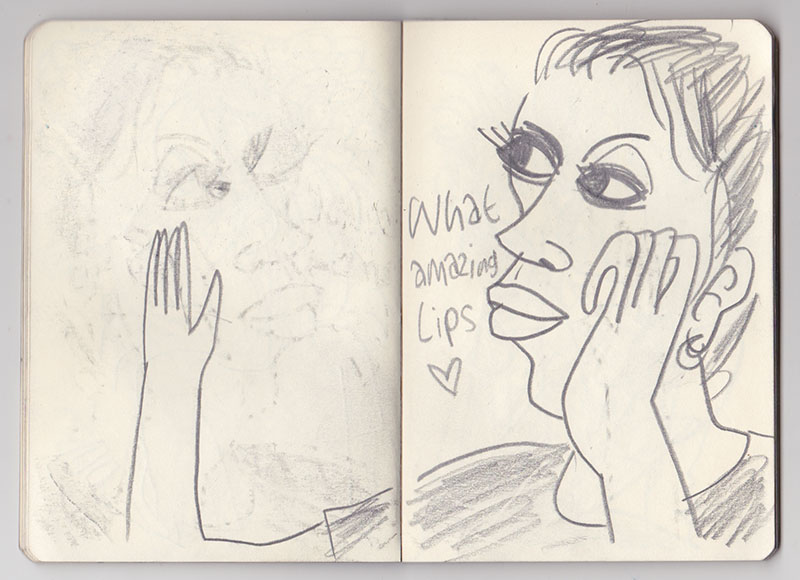 What
amazing
Lips